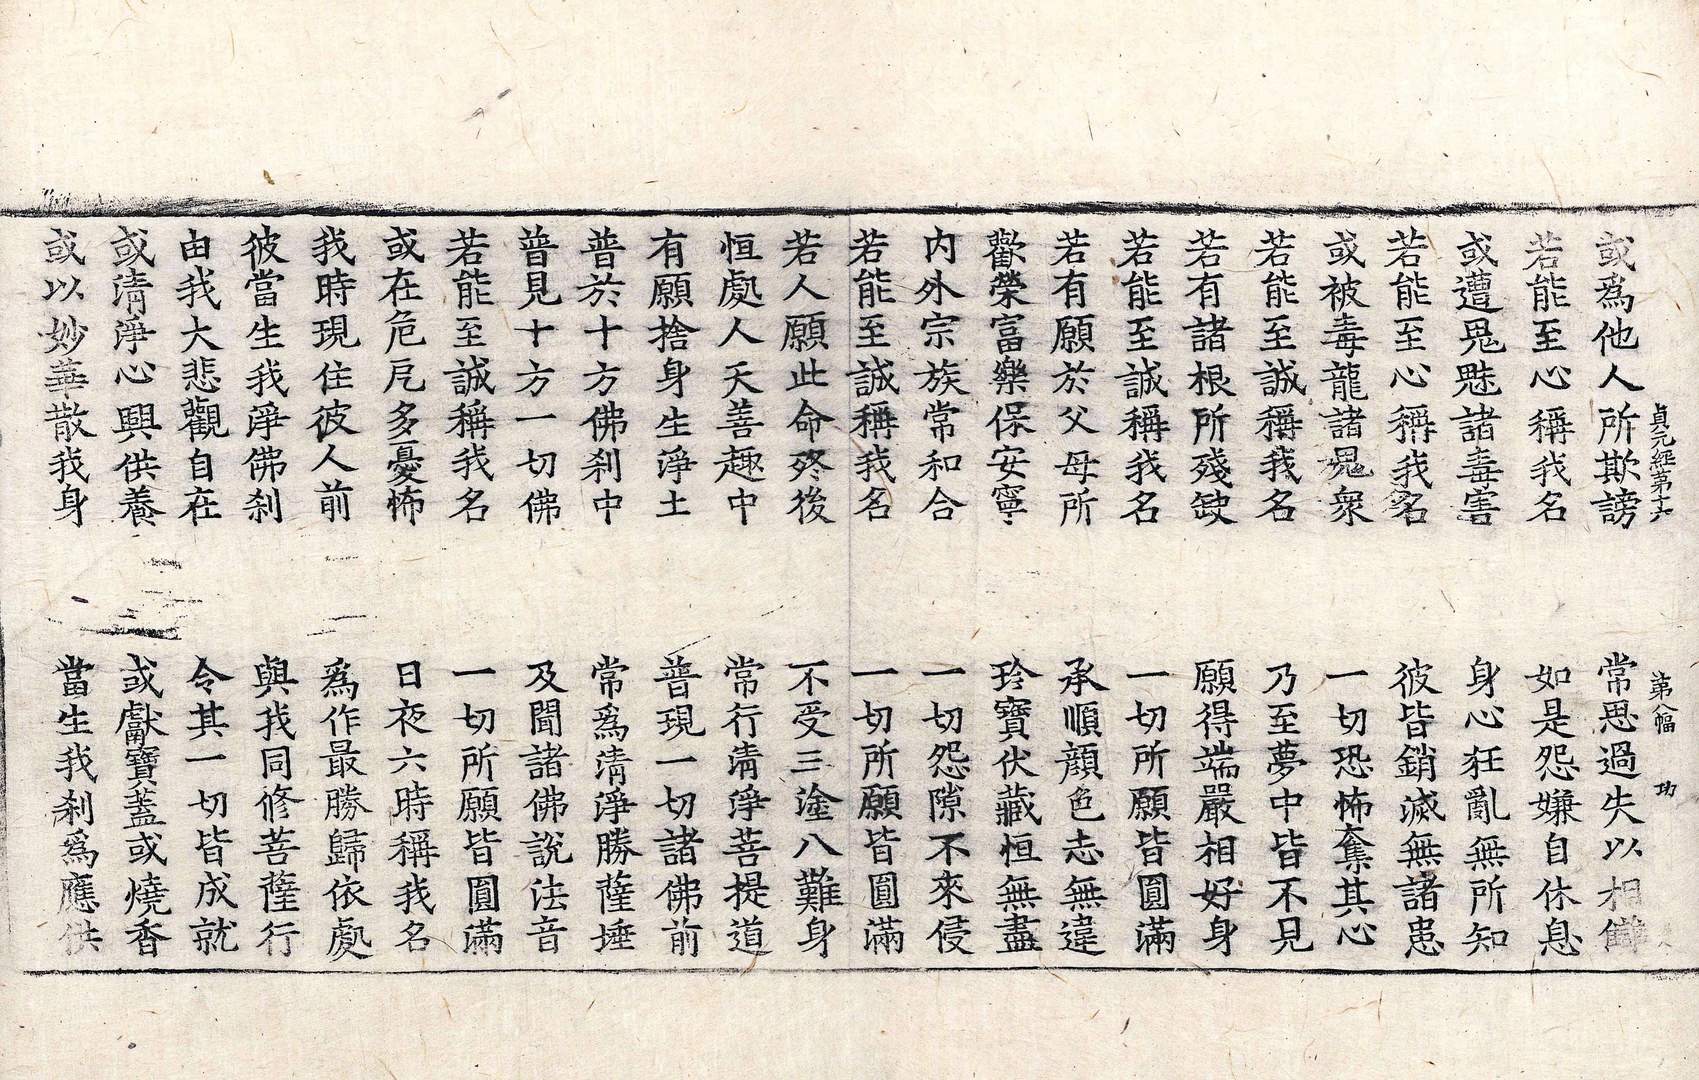 貞元經第十六　第八幅　功
或爲他人所欺謗　常思過失以相讎
若能至心稱我名　如是怨嫌自休息
或遭鬼魅諸毒害　身心狂亂無所知
若能至心稱我名　彼皆銷滅無諸患
或被毒龍諸鬼衆　一切恐怖奪其心
若能至誠稱我名　乃至夢中皆不見
若有諸根所殘缺　願得端嚴相好身
若能至誠稱我名　一切所願皆圓滿
若有願於父母所　承順顔色志無違
歡榮富樂保安寧　珍寶伏藏恒無盡
內外宗族常和合　一切怨隙不來侵
若能至誠稱我名　一切所願皆圓滿
若人願此命終後　不受三塗八難身
恒處人天善趣中　常行清淨菩提道
有願捨身生淨土　普現一切諸佛前
普於十方佛刹中　常爲清淨勝薩埵
普見十方一切佛　及聞諸佛說法音
若能至誠稱我名　一切所願皆圓滿
或在危戹多憂怖　日夜六時稱我名
我時現住彼人前　爲作最勝歸依處
彼當生我淨佛刹　與我同修菩薩行
由我大悲觀自在　令其一切皆成就
或清淨心興供養　或獻寶蓋或燒香
或以妙華散我身　當生我刹爲應供